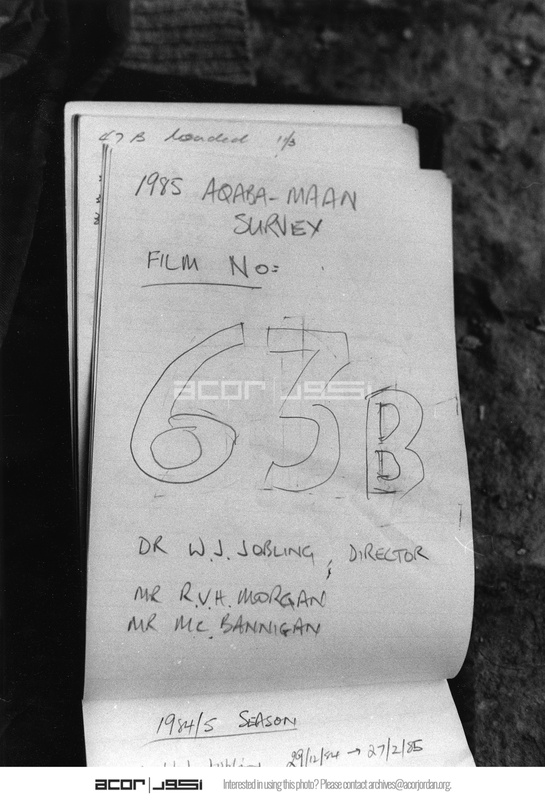 47 B Loaded 11/3
1985 AQABA-MAAN
SURVEY
FILM No:
63B
DR W.J. JOBLING, DIRECTOR
MR R.V.H. MORGAN
MR MC. BANNIGAN
1984/5 SEASON
29/12/84 → 27/2/85
acor | أكور
acor | أكور Interested in using this photo? Please contact archives@acorjordan.org.